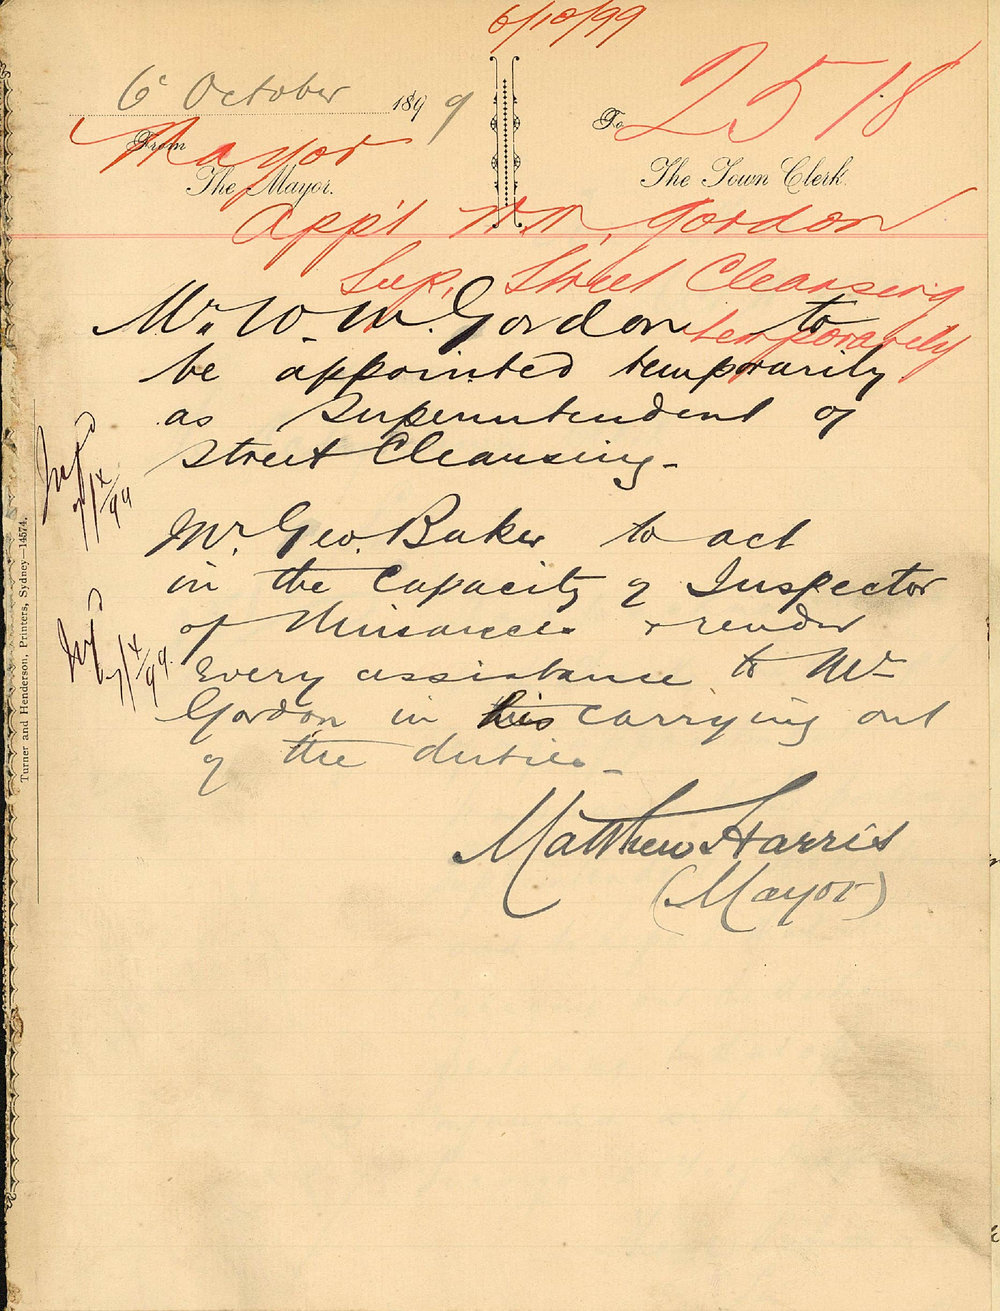 6/10/99
6 October 1899
2518
From
To
Mayor
The Mayor.
The Town Clerk.
App't W. M. Gordon
Sup. Street Cleansing
temporarily
Mr. W. M. Gordon to
be appointed temporarily
as Superintendent of
Street Cleansing.
Mr. Geo. Baker to act
in the Capacity of Inspector
of Nuisances & render
every assistance to Mr
Gordon in his carrying out
of the duties.
Matthew Harris
(Mayor)
Inf'd
7/X/99
Inf'd
7/X/99.
Turner and Henderson, Printers, Sydney—14574.